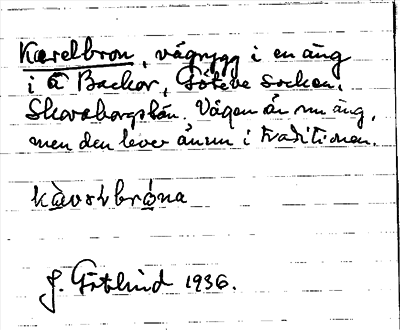 Karelbron, vägrygg i en äng
i Å Backor, Göteve socken,
Skaraborgs län. Vägen är nu äng,
men den lever ännu i traditionen.
J. Götlind 1936.